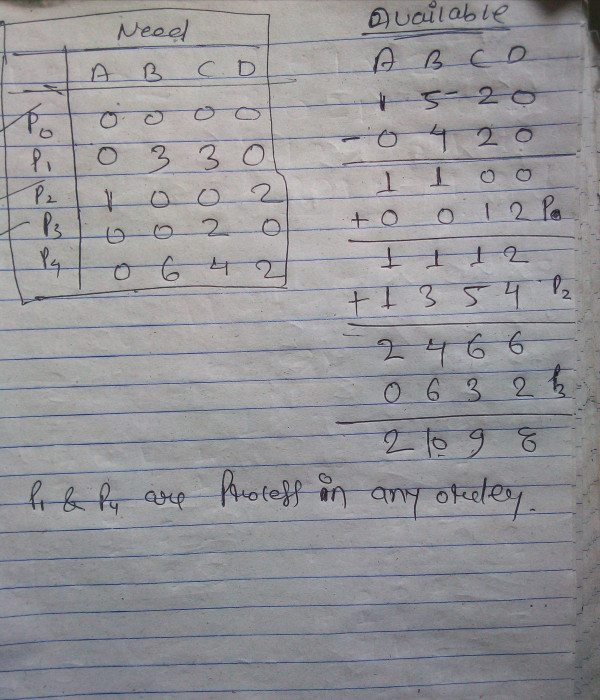 Need
A B C D
P0 0 0 0 0
P1 0 3 3 0
P2 1 0 0 2
P3 0 0 2 0
P4 0 6 4 2
Available
A B C D
1 5 2 0
- 0 4 2 0
1 1 0 0
+ 0 0 1 2 P0
1 1 1 2
+ 1 3 5 4 P2
2 4 6 6
0 6 3 2 P3
2 10 9 8
P1 & P4 are Process in any order.